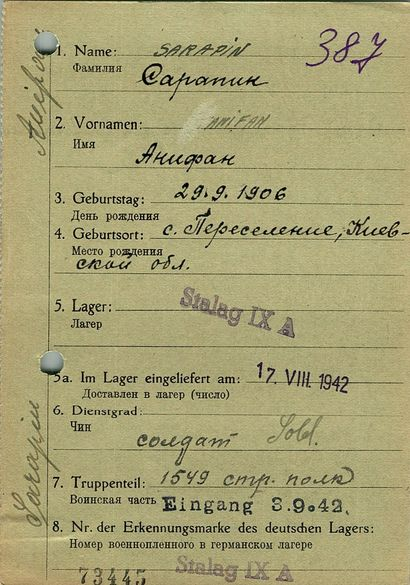 387
1. Name: SARAPIN
Фамилия
Сарапин
2. Vornamen: ANIFAN
Имя
Анифан
3. Geburtstag: 29.9.1906
День рождения
4. Geburtsort: с. Переселение, Киев-
Место рождения
ской обл.
5. Lager: Stalag IX A
Лагер
5a. Im Lager eingeliefert am: 17. VIII. 1942
Доставлен в лагер (число)
6. Dienstgrad:
Чин
солдат Sold.
7. Truppenteil: 1549 стр. полк
Воинская часть Eingang 3.9.42.
8. Nr. der Erkennungsmarke des deutschen Lagers:
Номер военнопленного в германском лагере
73445 Stalag IX A
Sarapin